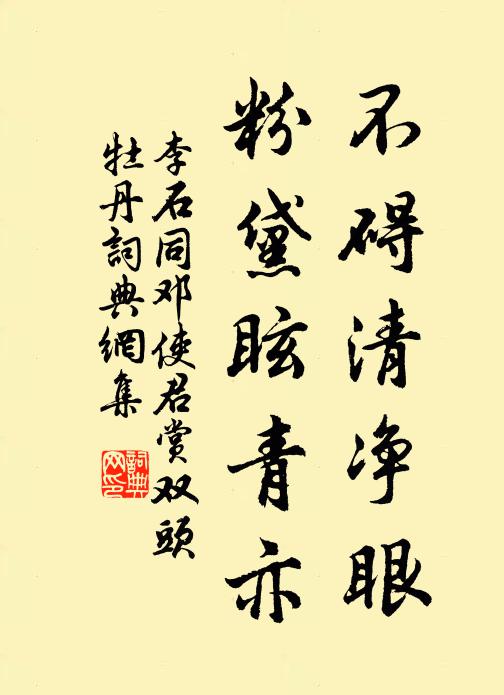 不碍清净眼
粉黛眩青亦
李石同邓使君赏双頭
牡丹詞典網集
詞典
网印